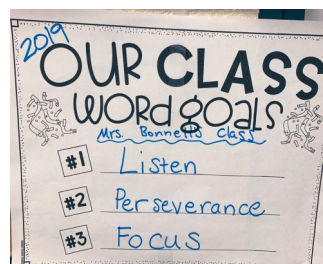 2019
OUR CLASS
WORD goals
Mrs. Bonnett's Class
#1 Listen
#2 Perseverance
#3 Focus